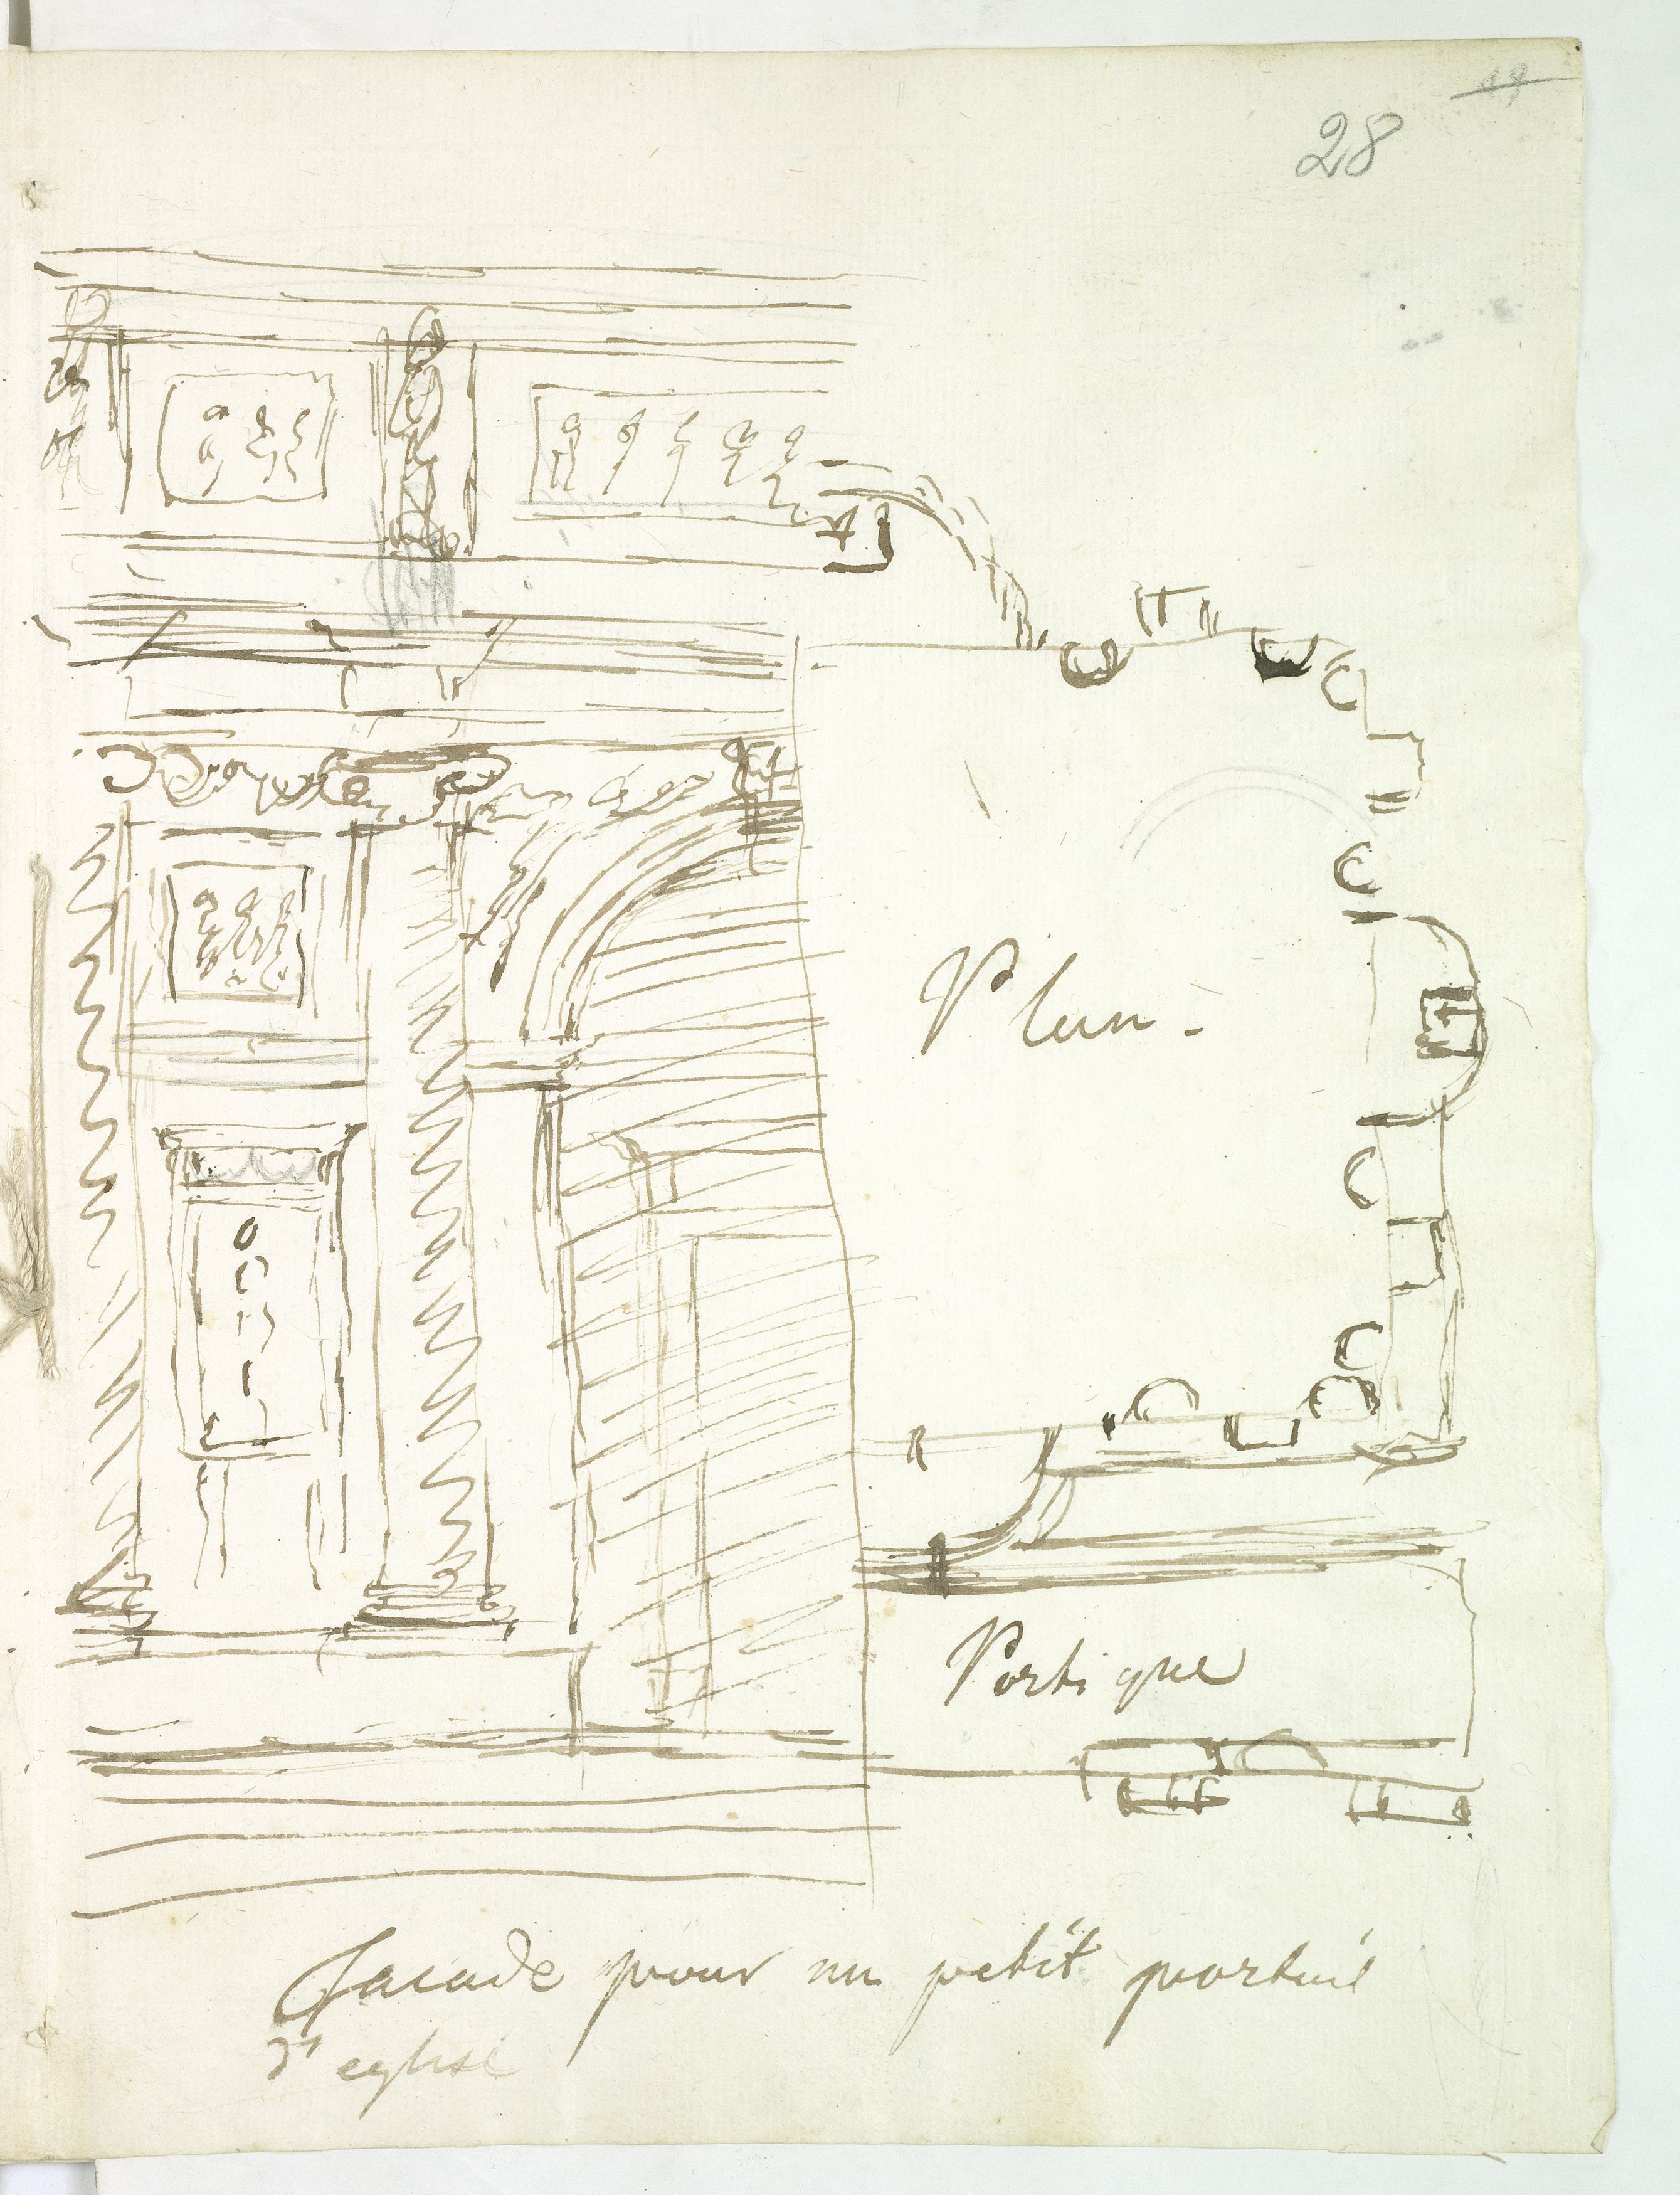 19
28
Plan.
Portique
facade pour un petit portail
d'eglise